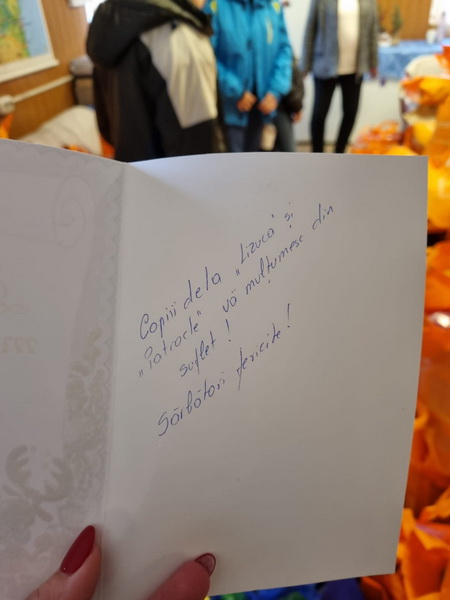 Copiii de la „Lizuca" și
„Patrocle" vă mulțumesc din
suflet !
Sărbători fericite!